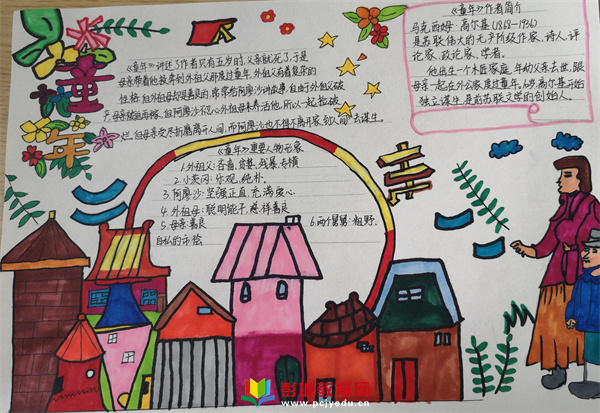 童年
《童年》讲述了作者只有五岁时,父亲就死了,于是
母亲带着他投奔到外祖父母家度过童年,外祖父有着复杂的
性格,但外祖母却是善良的,常常给阿廖沙讲故事,但由于外祖父破
产,母亲被迫再嫁,但阿廖沙不忍心外祖母来养活他,所以一起捡破
烂,但母亲受尽折磨离开人间,而阿廖沙也不得不离开家,到人间去谋生。
《童年》重要人物形象
1.外祖父:吝啬、贪婪、残暴、专横
2.小茨冈:乐观、纯朴。
3.阿廖沙:坚强正直、充满爱心
4.外祖母:聪明能干、慈祥善良
5.母亲:善良
6.两个舅舅:粗野、
自私的市侩
《童年》作者简介
马克西姆·高尔基(1868-1936)
是苏联伟大的无产阶级作家、诗人、评
论家、政论家、学者。
他出生一个木匠家庭,年幼父亲去世,跟
母亲一起在外公家度过童年,高尔基开始
独立谋生,是前苏联文学的创始人。
彭城教育网
www.pcjyedu.cn